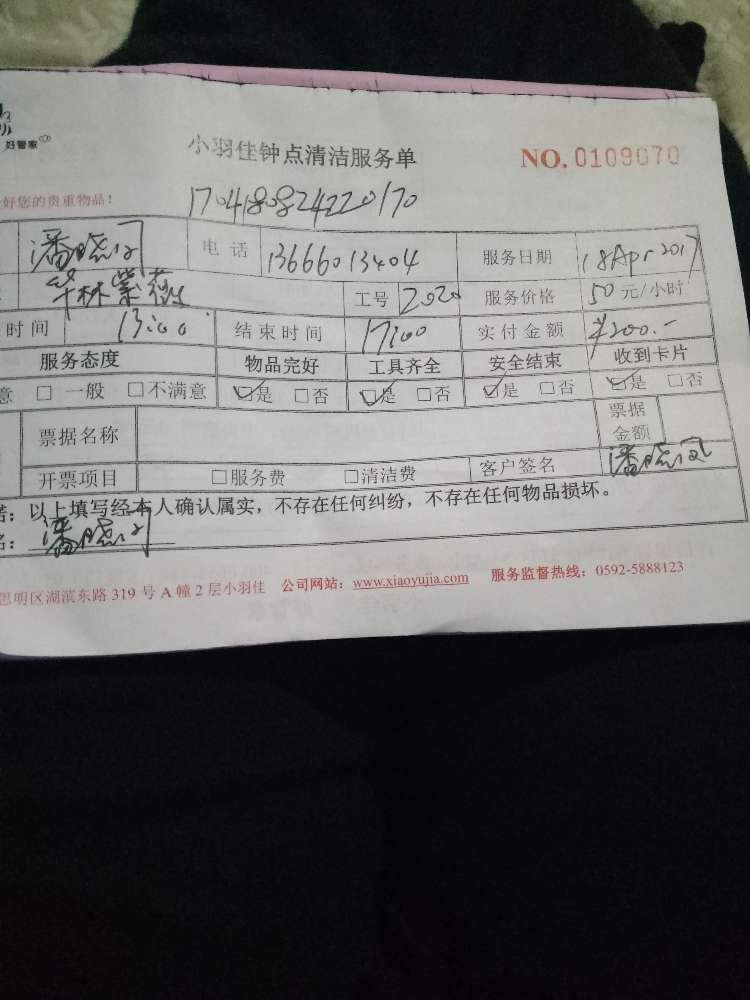 好管家
小羽佳钟点清洁服务单 NO. 0109070
好您的贵重物品!
1704180824220170
潘晓闵 电话 13666013404 服务日期 18Apr2017
华林紫薇 工号 2020 服务价格 50元/小时
时间 13:00 结束时间 17:00 实付金额 ¥200.-
服务态度 物品完好 工具齐全 安全结束 收到卡片
意 □ 一般 □不满意 ☑是 □否 ☑是 □否 ☑是 □否 ☑是 □否
票据名称 票据金额
开票项目 □服务费 □清洁费 客户签名
诺：以上填写经本人确认属实，不存在任何纠纷，不存在任何物品损坏。
名：
思明区湖滨东路 319 号 A 幢 2 层小羽佳 公司网站：www.xiaoyujia.com 服务监督热线：0592-5888123